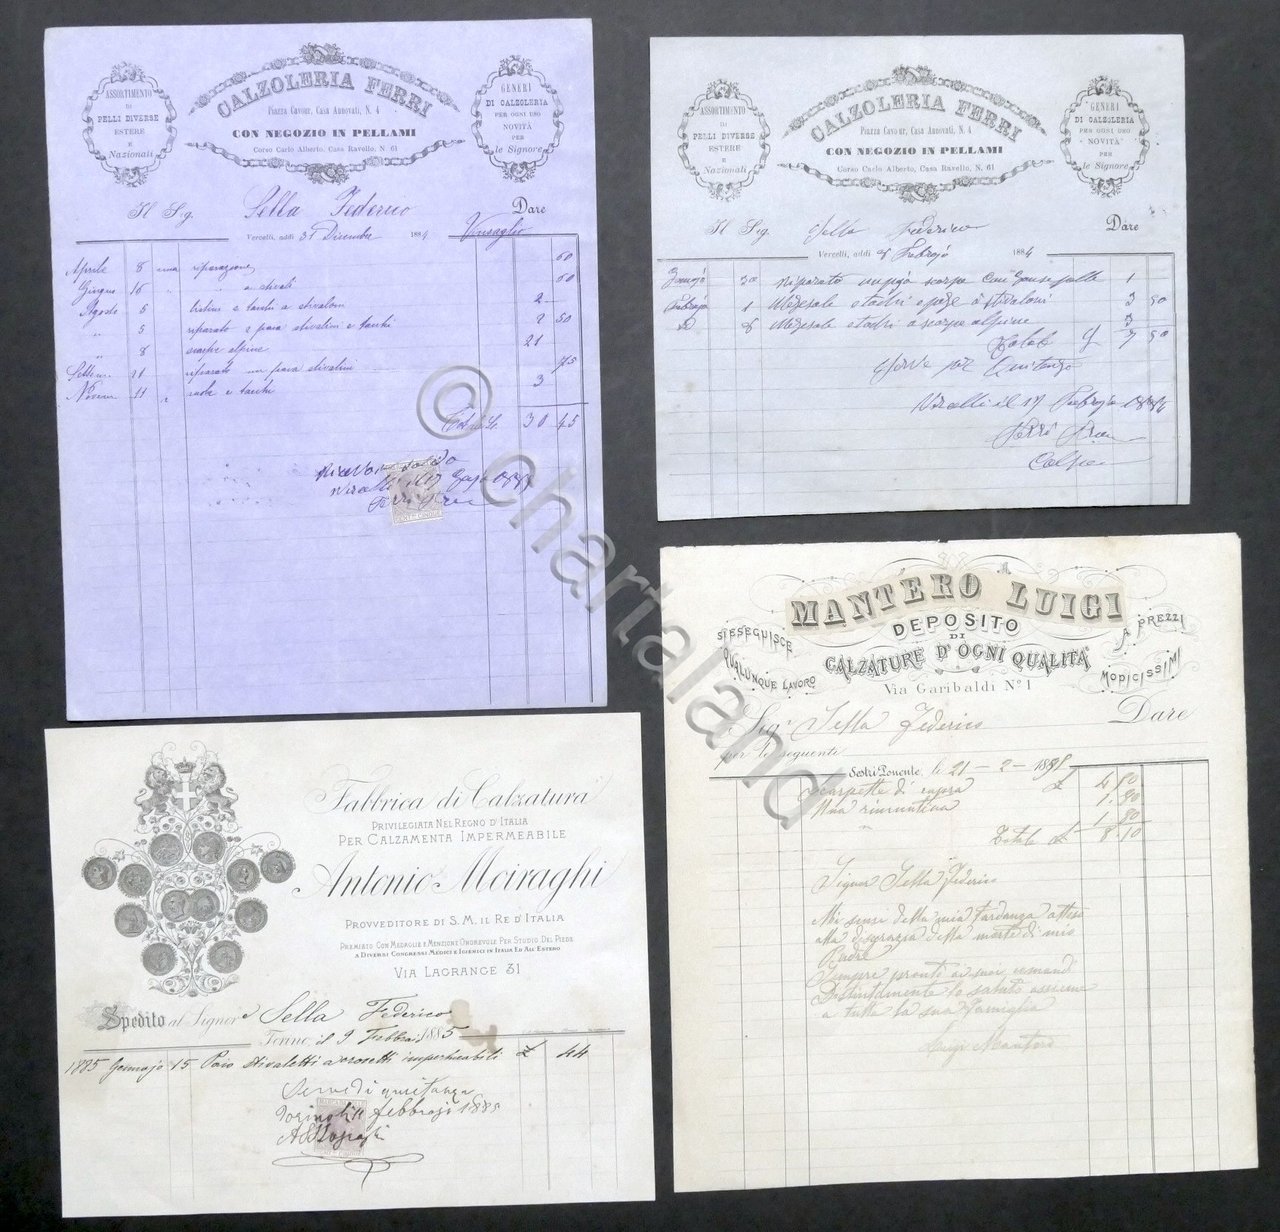 ASSORTIMENTO
DI
PELLI DIVERSE
ESTERE
E
Nazionali
CALZOLERIA FERRI
Piazza Cavour, Casa Annovati, N. 4
CON NEGOZIO IN PELLAMI
Corso Carlo Alberto, Casa Ravello, N. 61
GENERI
DI CALZOLERIA
PER OGNI USO
NOVITÀ
PER
le Signore
Il Sig. Sella Federico Dare
Vercelli, addì 31 Dicembre 1884
Aprile 8 riparazione 60
Giugno 16 " a stivali 60
Agosto 5 e tachi a stivaloni 2
" 5 riparato e paia stivalini e tachi 2 50
" 8 scarpe alpine 21
21 riparato un paia stivalini 75
11 suole e tachi 3
30 45
CENT. CINQUE
ASSORTIMENTO
DI
PELLI DIVERSE
ESTERE
E
Nazionali
CALZOLERIA FERRI
Piazza Cavour, Casa Annovati, N. 4
CON NEGOZIO IN PELLAMI
Corso Carlo Alberto, Casa Ravello, N. 61
GENERI
DI CALZOLERIA
PER OGNI USO
NOVITÀ
PER
le Signore
Il Sig. Sella Federico Dare
Vercelli, addì 8 Febrajo 1884
30 riparato scarpe 1
Febrajo 1 e stachi e peze a stivaloni 3 50
8 e stachi a scarpe alpine 3
7 50
Serve per Quitanza
il 17 Febrajo
Ferri
MANTERO LUIGI
DEPOSITO
DI
CALZATURE D'OGNI QUALITÀ
Via Garibaldi N° 1
SI ESEGUISCE
QUALUNQUE LAVORO
A PREZZI
MODICISSIMI
Sigr Sella Federico Dare
per le seguente
Sestri Ponente, le 21-2-1898
Scarpette di 4,80
Una rimontura 1,80
" 1,80
Totale £ 8,10
Signor Sella Federico
Mi scusi della mia tardanza atteso
alla disgrazia della morte di mio
Padre
Sempre pronto ai suoi comandi
Distintamente la saluto assieme
a tutta la sua Famiglia
Luigi Mantero
Fabbrica di Calzatura
PRIVILEGIATA NEL REGNO D'ITALIA
PER CALZAMENTA IMPERMEABILE
Antonio Moiraghi
PROVVEDITORE DI S. M. IL RE D'ITALIA
PREMIATO CON MEDAGLIE E MENZIONE ONOREVOLE PER STUDIO DEL PIEDE
A DIVERSI CONGRESSI MEDICI E IGIENICI IN ITALIA ED ALL'ESTERO
VIA LAGRANGE 31
Spedito al Signore Sella Federico
Torino, il 9 Febbraio 1885
1885 Gennajo 15 Paio stivaletti impermeabili £ 44
Serve di quietanza
Torino li 11 febbrajo 1885
A Moiraghi
© chartaland